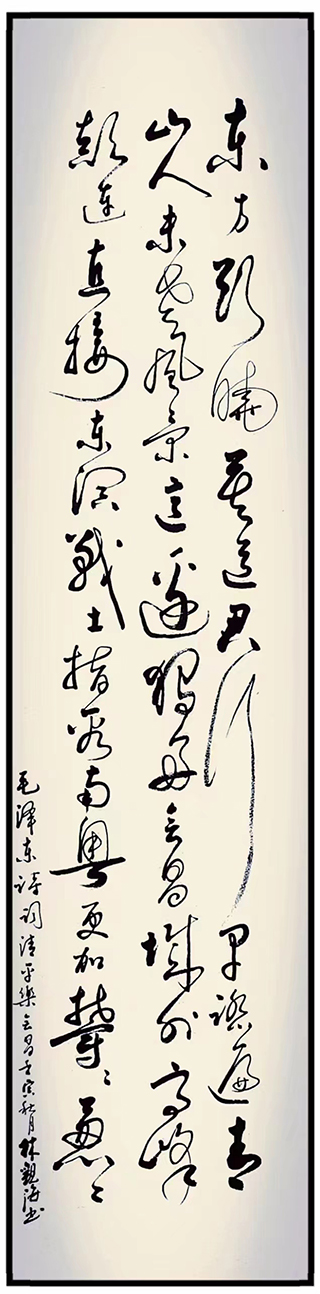 东方欲晓莫道君行早踏遍青
山人未老风景這邊獨好会昌城外高峰
颠连直接东溟戰士指看南粤更加鬱々葱々
毛泽东诗词清平樂会昌壬寅秋月林觀海书